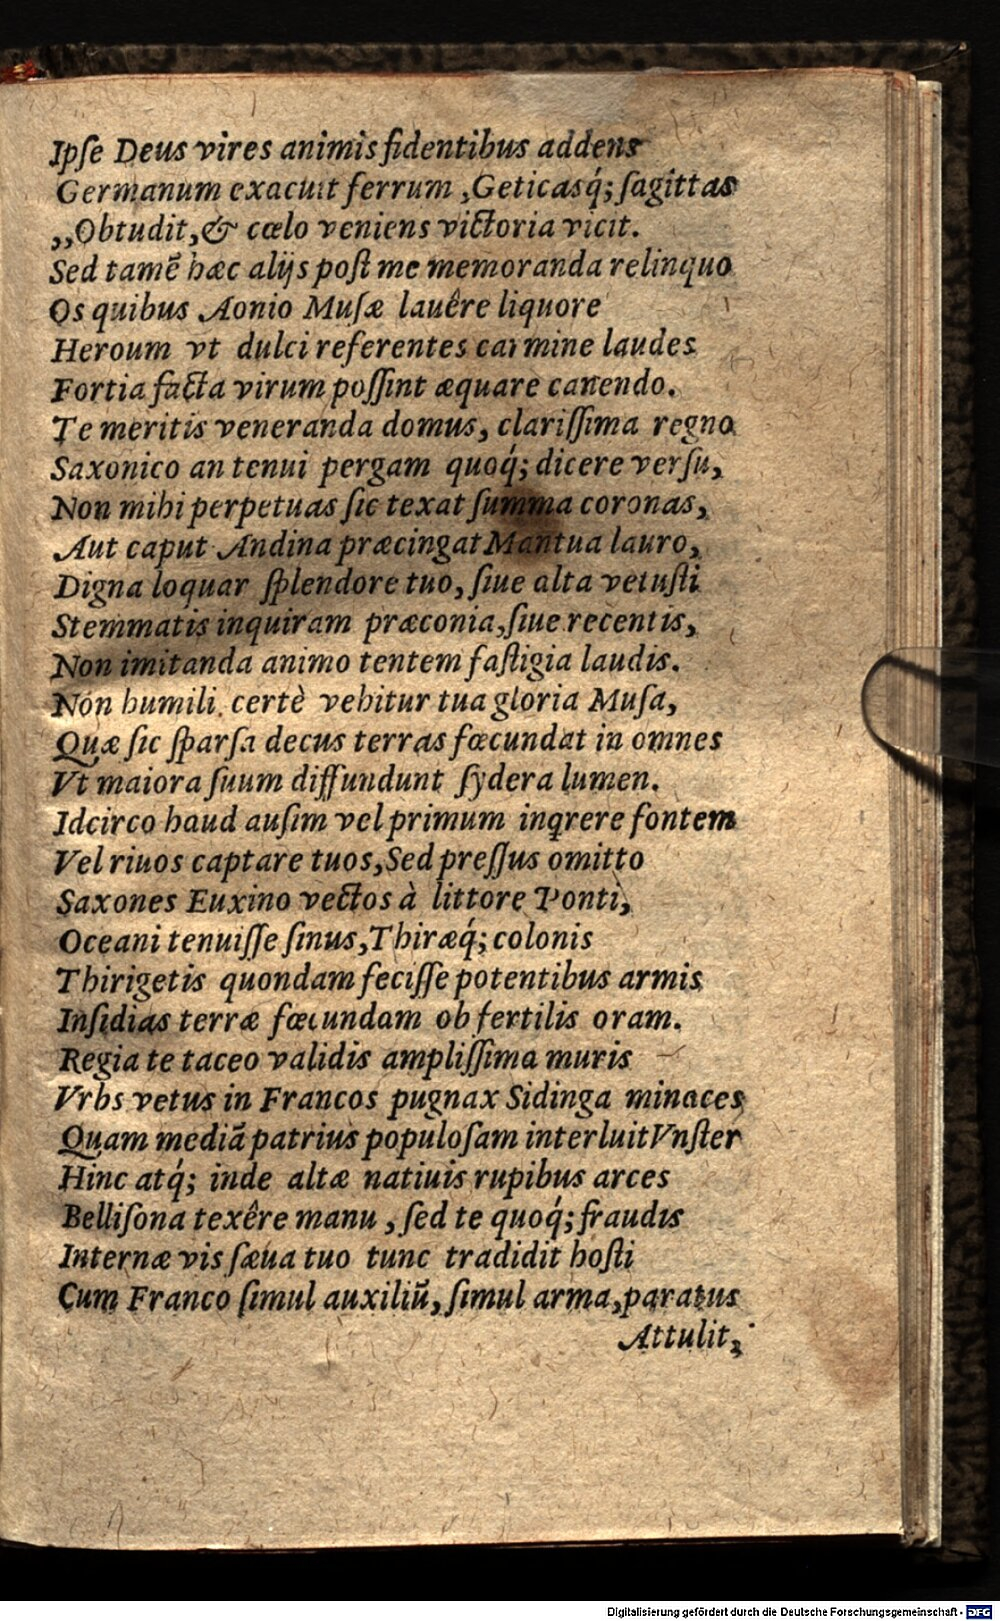 Ipſe Deus vires animis fidentibus addens
Germanum exacuit ferrum, Geticasq́; ſagittas
,,Obtudit, & cœlo veniens victoria vicit.
Sed tamẽ hæc alijs poſt me memoranda relinquo
Os quibus Aonio Muſæ lauêre liquore
Heroum vt dulci referentes carmine laudes
Fortia facta virum poſſint æquare canendo.
Te meritis veneranda domus, clariſſima regno
Saxonico an tenui pergam quoq́; dicere verſu,
Non mihi perpetuas ſic texat ſumma coronas,
Aut caput Andina præcingat Mantua lauro,
Digna loquar ſplendore tuo, ſiue alta vetuſti
Stemmatis inquiram præconia, ſiue recentis,
Non imitanda animo tentem faſtigia laudis.
Non humili certè vehitur tua gloria Muſa,
Quæ ſic ſparſa decus terras fœcundat in omnes
Vt maiora ſuum diffundunt ſydera lumen.
Idcirco haud auſim vel primum inqrere fontem
Vel riuos captare tuos, Sed preſſus omitto
Saxones Euxino vectos à littore Ponti,
Oceani tenuiſſe ſinus, Thiræq́; colonis
Thirigetis quondam feciſſe potentibus armis
Inſidias terræ fœcundam ob fertilis oram.
Regia te taceo validis ampliſſima muris
Vrbs vetus in Francos pugnax Sidinga minaces
Quam mediã patrius populoſam interluit Vnſter
Hinc atq́; inde altæ natiuis rupibus arces
Belliſona texêre manu, ſed te quoq́; fraudis
Internæ vis ſæua tuo tunc tradidit hoſti
Cum Franco ſimul auxiliũ, ſimul arma, paratus
Attulit,
Digitalisierung gefördert durch die Deutsche Forschungsgemeinschaft - DFG